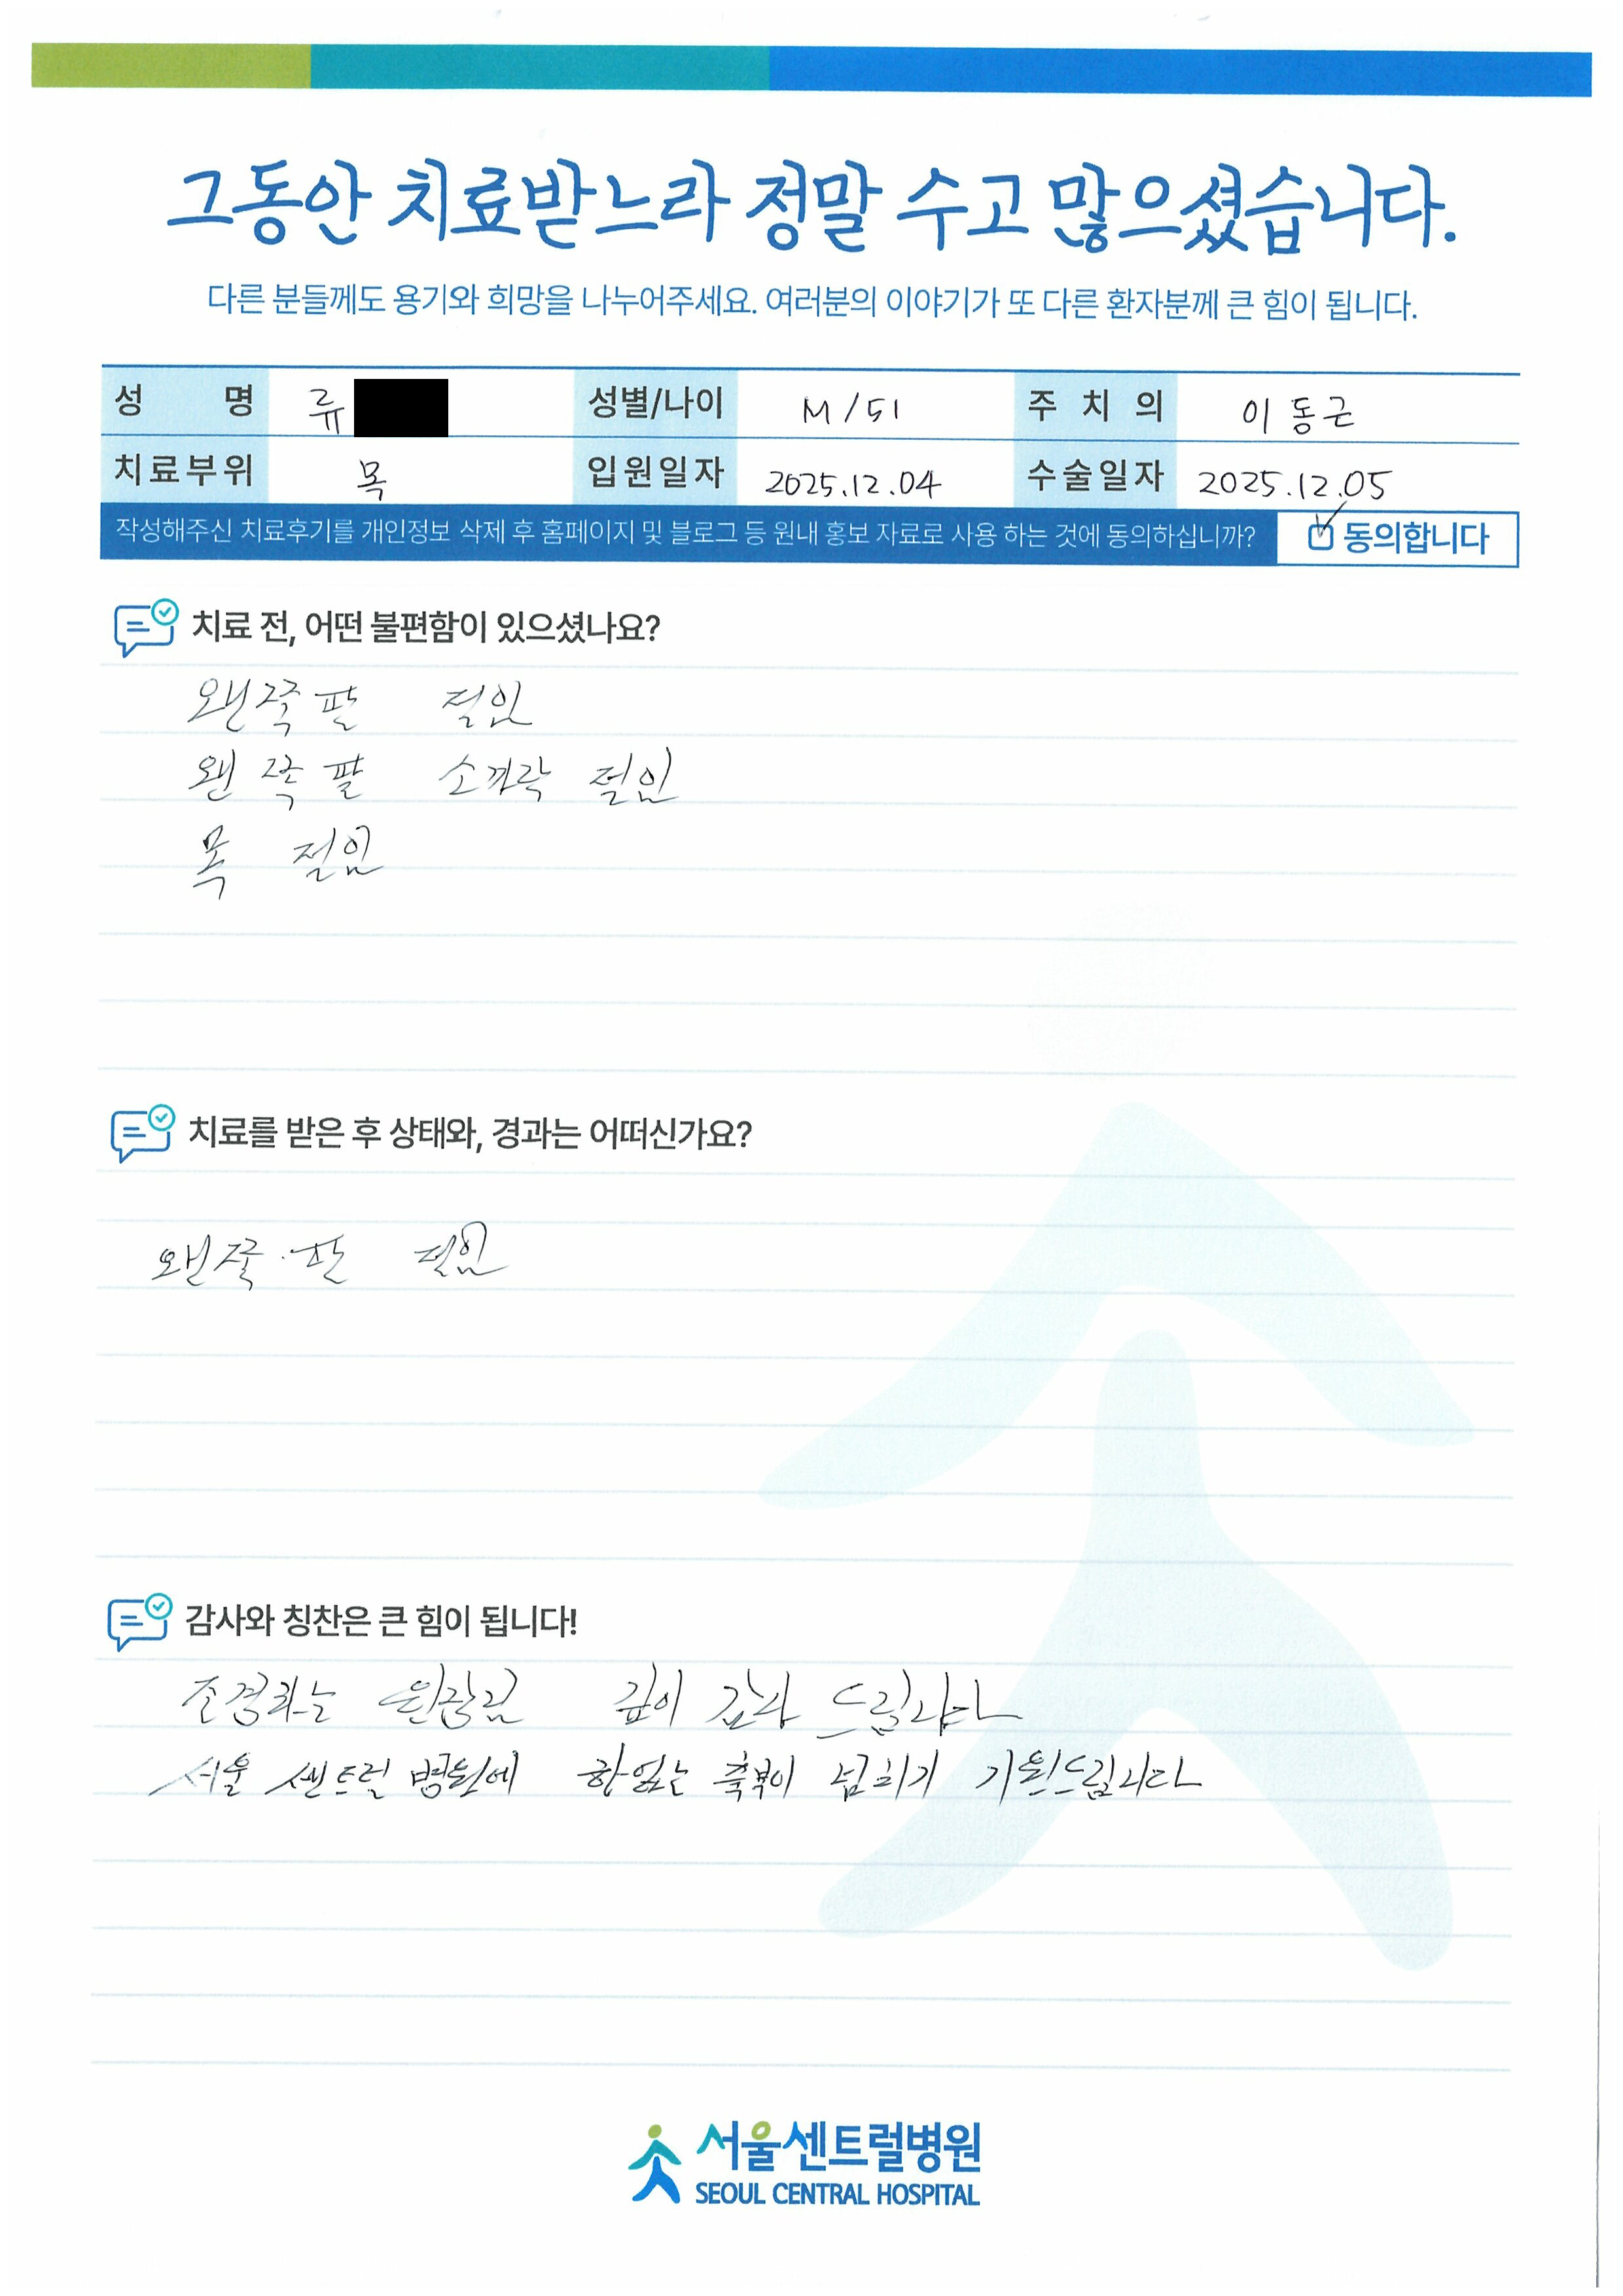 그동안 치료받느라 정말 수고 많으셨습니다.
다른 분들께도 용기와 희망을 나누어주세요. 여러분의 이야기가 또 다른 환자분께 큰 힘이 됩니다.
성 명 류 성별/나이 M/51 주 치 의 이동근
치료부위 목 입원일자 2025.12.04 수술일자 2025.12.05
작성해주신 치료후기를 개인정보 삭제 후 홈페이지 및 블로그 등 원내 홍보 자료로 사용 하는 것에 동의하십니까? 동의합니다
치료 전, 어떤 불편함이 있으셨나요?
왠쪽 팔 절임
왠쪽 팔 소까락 절임
목 절임
치료를 받은 후 상태와, 경과는 어떠신가요?
왠쪽 팔 절임
감사와 칭찬은 큰 힘이 됩니다!
조경하는 원장님 깊이 감사 드립니다
서울 센트럴 병원에 한없는 축복이 넘치기 기원드립니다
서울센트럴병원
SEOUL CENTRAL HOSPITAL